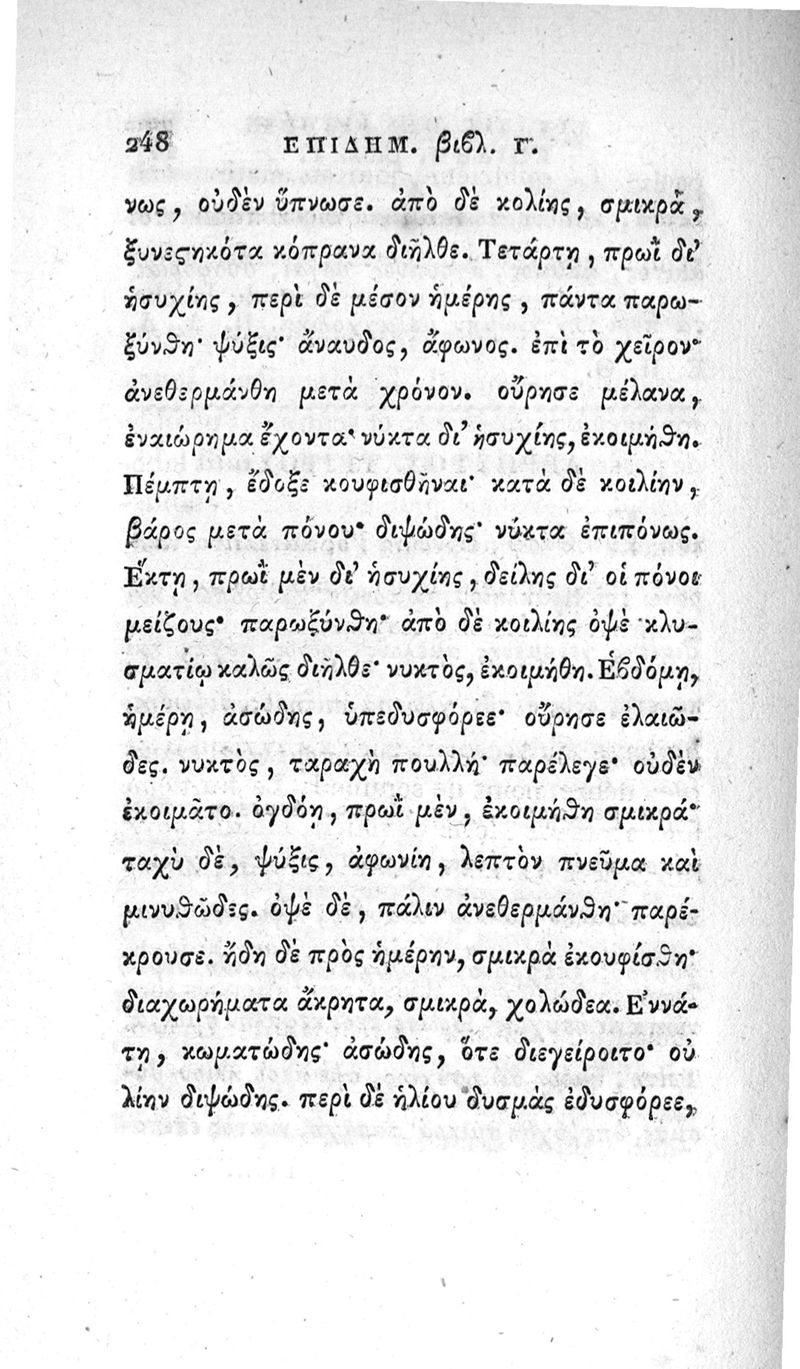 248 ΕΠΙΔΗΜ. βιϐλ. Γ.
νως, οὐδὲν ὕπνωσε. ἀπὸ δὲ κολίης, σμικρὰ,
ξυνεϛηκότα κόπρανα διῆλθε. Τετάρτῃ, πρωῒ δι’
ἡσυχίης, περὶ δὲ μέσον ἡμέρης, πάντα παρω-
ξύνθη· ψύξις· ἄναυδος, ἄφωνος. ἐπὶ τὸ χεῖρον·
ἀνεθερμάνθη μετὰ χρόνον. οὔρησε μέλανα,
ἐναιώρημα ἔχοντα· νύκτα δι’ ἡσυχίης, ἐκοιμήθη.
Πέμπτῃ, ἔδοξε κουφισθῆναι· κατὰ δὲ κοιλίην,
βάρος μετὰ πόνου· διψώδης· νύκτα ἐπιπόνως.
Ἕκτῃ, πρωῒ μὲν δι’ ἡσυχίης, δείλης δι’ οἱ πόνοι
μείζους· παρωξύνθη· ἀπὸ δὲ κοιλίης ὀψὲ κλυ-
σματίῳ καλῶς διῆλθε· νυκτὸς, ἐκοιμήθη. Ἑϐδόμῃ,
ἡμέρῃ, ἀσώδης, ὑπεδυσφόρεε· οὔρησε ἐλαιῶ-
δες. νυκτὸς, ταραχὴ πουλλή· παρέλεγε· οὐδὲν
ἐκοιμᾶτο. ὀγδόῃ, πρωῒ μὲν, ἐκοιμήθη σμικρά·
ταχὺ δὲ, ψύξις, ἀφωνίη, λεπτὸν πνεῦμα καὶ
μινυθῶδες. ὀψὲ δὲ, πάλιν ἀνεθερμάνθη· παρέ-
κρουσε. ἤδη δὲ πρὸς ἡμέρην, σμικρὰ ἐκουφίσθη·
διαχωρήματα ἄκρητα, σμικρὰ, χολώδεα. Ἐννά-
τῃ, κωματώδης· ἀσώδης, ὅτε διεγείροιτο· οὐ
λίην διψώδης. περὶ δὲ ἡλίου δυσμὰς ἐδυσφόρεε,